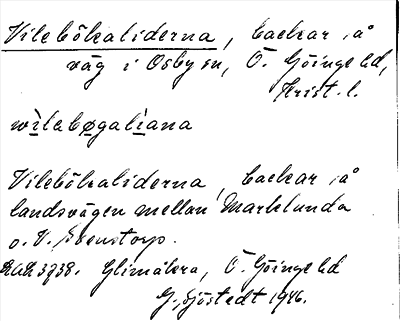 Vilebökaliderna, backar å
väg i Osby sn, Ö. Göinge hd,
Krist. l.
wilebøgaliana
Vilebökaliderna, backar å
landsvägen mellan Marklunda
o. V. Svenstorp.
RAÄ 3738. Glimåkra, Ö. Göinge hd
G. Sjöstedt 1946.